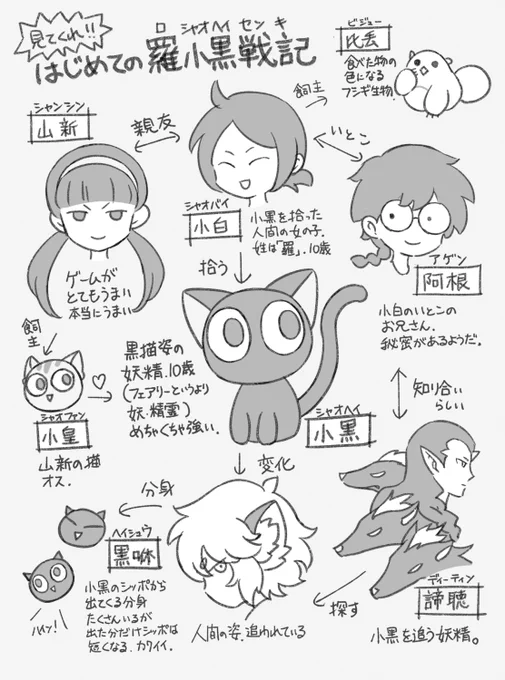 見てくれ!!
はじめての羅小黒戦記
ロ シャオヘイ センキ
ビジュー
比丢
食べた物の
色になる
フシギ生物.
飼主
シャンシン
山新
親友
いとこ
シャオバイ
小白
小黒を拾った
人間の女の子.
姓は「羅」.10歳
アゲン
阿根
小白のいとこの
お兄さん.
秘密があるようだ。
ゲームが
とてもうまい
本当にうまい
拾う
飼主
シャオファン
小皇
山新の猫
オス.
黒猫姿の
妖精.10歳
(フェアリーというより
妖・精霊)
めちゃくちゃ強い.
シャオヘイ
小黒
知り合い
らしい
変化
分身
ヘイシュウ
黒咻
小黒のシッポから
出てくる分身
たくさんいるが
出た分だけシッポは
短くなる.カワイイ.
ハイッ!
人間の姿.追われている
探す
ディーティン
諦聴
小黒を追う妖精。